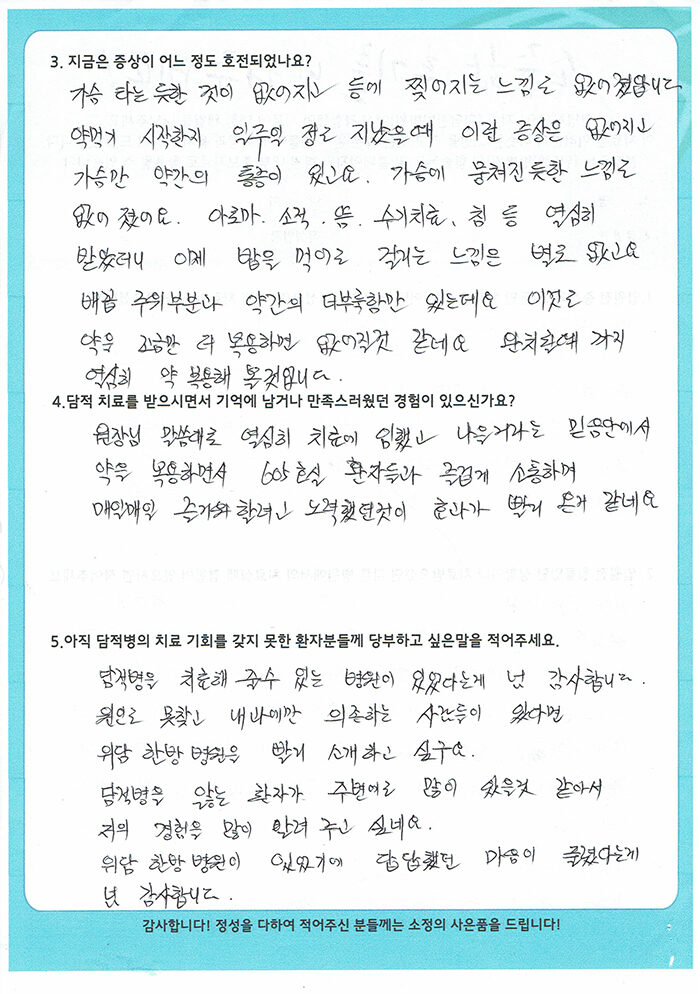 3. 지금은 증상이 어느 정도 호전되었나요?
가슴 타는 듯한 것이 없어지고 등에 찢어지는 느낌도 없어졌습니다
약먹기 시작한지 일주일 정도 지났을때 이런 증상은 없어지고
가슴만 약간의 통증이 있고요. 가슴에 뭉쳐진듯한 느낌도
없어 졌어요. 아로마. 소적. 뜸. 수기치료, 침 등 열심히
받았더니 이제 밥을 먹어도 걸리는 느낌은 별로 없고요
배꼽 주위부분과 약간의 더부룩함만 있는데요 이것도
약을 조금만 더 복용하면 없어질것 같네요 완치할때 까지
열심히 약 복용해 볼것입니다.
4.담적 치료를 받으시면서 기억에 남거나 만족스러웠던 경험이 있으신가요?
원장님 말씀대로 열심히 치료에 임했고 나을거라는 믿음안에서
약을 복용하면서 605호실 환자들과 즐겁게 소통하며
매일매일 즐거워할려고 노력했던것이 효과가 빨리 온거 같네요
5.아직 담적병의 치료 기회를 갖지 못한 환자분들께 당부하고 싶은말을 적어주세요.
담적병을 치료해 줄수 있는 병원이 있었다는게 넘 감사합니다.
원인도 못찾고 내과에만 의존하는 사람들이 있다면
위담 한방 병원을 빨리 소개하고 싶구요.
담적병을 앓는 환자가 주변에도 많이 있을것 같아서
저의 경험을 많이 알려 주고 싶네요.
위담 한방 병원이 있었기에 답답했던 마음이 풀렸다는게
넘 감사합니다.
감사합니다! 정성을 다하여 적어주신 분들께는 소정의 사은품을 드립니다!